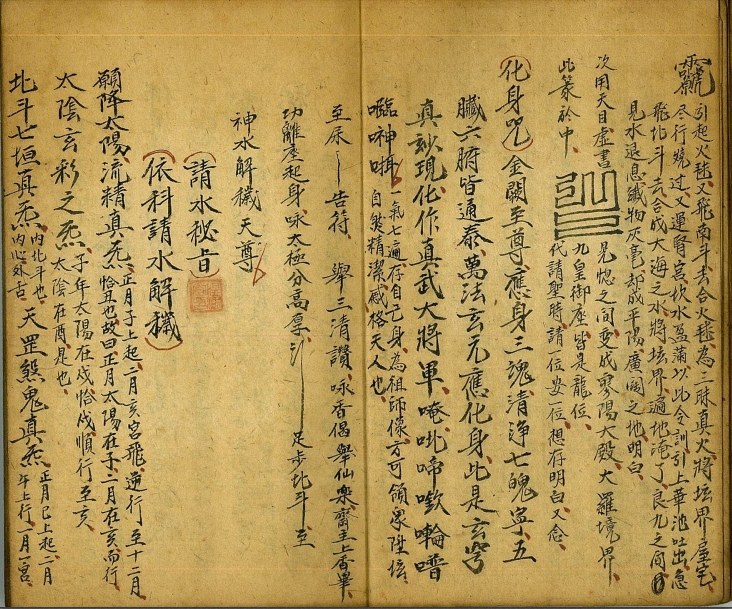 引起火毬又飛南斗去合火毬為三昧真火將坛界屋宅
尽行燒过又運腎宫坎水盈满以此令訓引上華池吐出急
飛北斗去合成大海之水將坛界遍地淹了良久之间
見水退息穢物灰毫却成平陽廣闊之地明白
次用天目虚書
此篆於中
見惚之间变成寥陽大殿大羅境界
九皇御座皆是龍位
代請聖時請一位安一位想存明白又念
化身咒 金闕至尊應身三魂清净七魄寧五
臟六腑皆通泰萬法玄元應化身此是玄穹
真妙現化作真武大將軍唵吡啼
氣七遍存自己身為祖師像方可領眾陞坛
自然精潔感格天人也
告符 舉三清讚咏香偈舉仙樂齋主上香畢
功離座起身咏太極分高厚 足步北斗至
神水解穢天尊
請水秘旨
依科請水解穢
願降太陽流精真炁 正月子上起二月亥宫飛逆行至十二月
恰丑也故曰正月太陽在子二月在亥而行
子年太陽在戍恰戍順行至亥
太陰玄彩之炁 太陰在酉是也
北斗七垣真炁 内北斗也
天罡煞鬼真炁 正月巳上起二月
午上行一月一宫